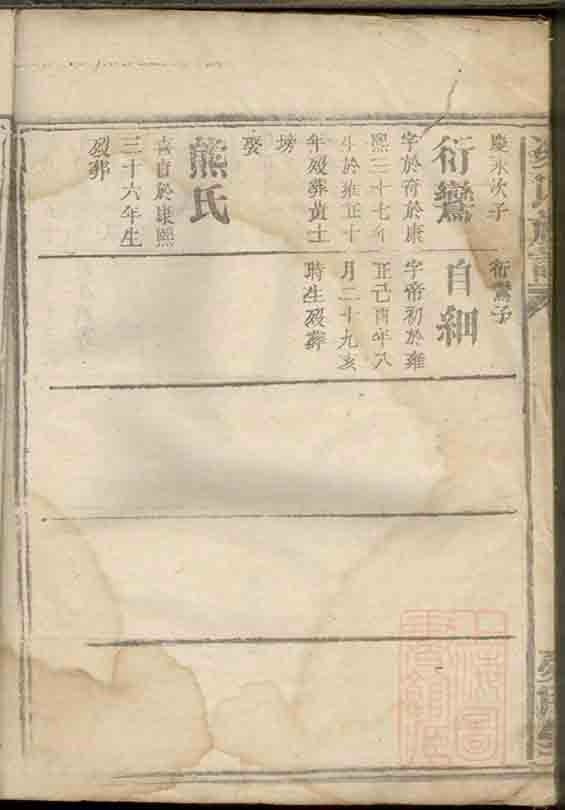 慶來次子
衍鸞
字於荷於康
熙三十七年
生於雍正十
年歿葬黃土
塝
娶
熊氏
喜宦於康熙
三十六年生
歿葬
衍鸞子
自細
字帝初於雍
正己酉年八
月二十九亥
時生歿葬
氏族譜